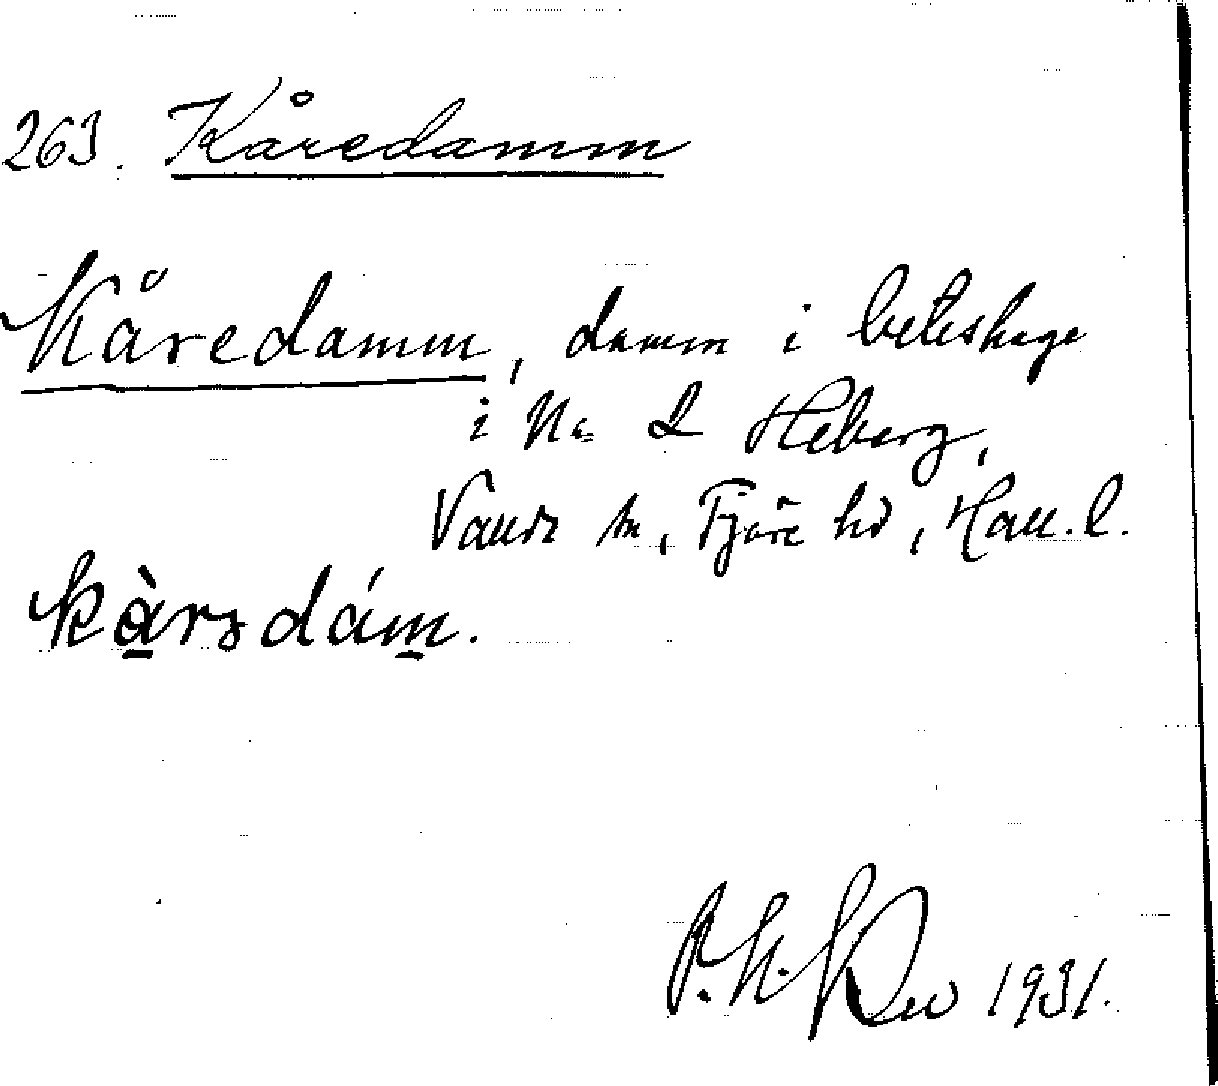 263. Kåredamm
Kåredamm, damm i beteshage
i Na 2 Heberg,
Vands sn, Fjäre hd, Hall. l.
kàrsdám.
1931.